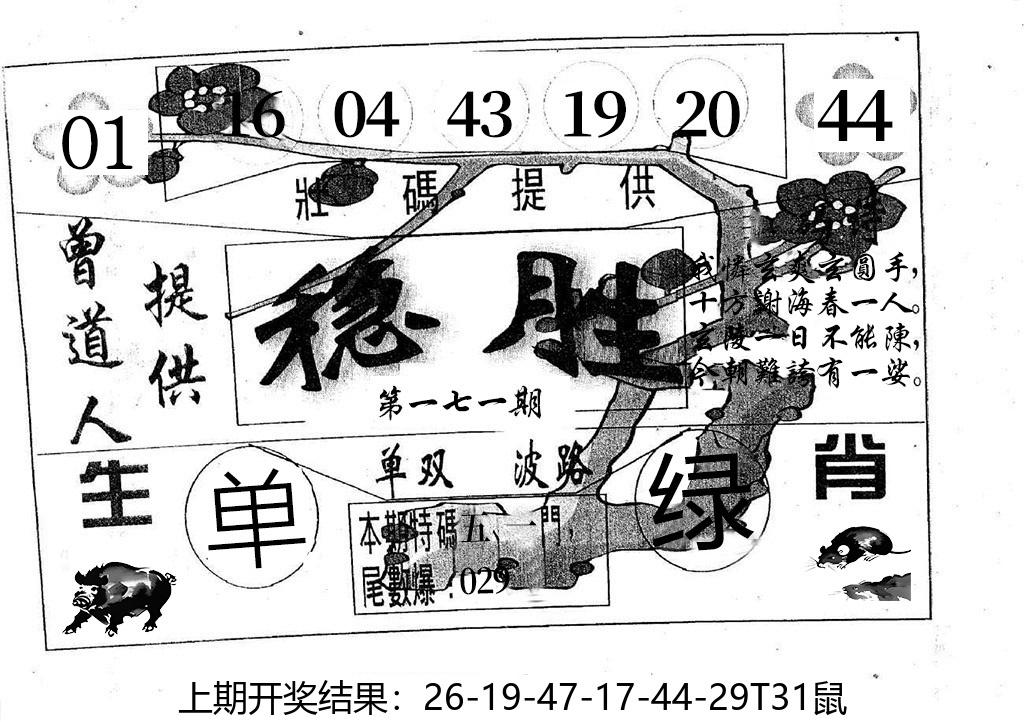 01 16 04 43 19 20 44
壯碼提供
曾道人
提供
稳胜
我憐玄爽玄圓手，
十方謝海春一人。
玄陵一日不能陳，
今朝難誇有一娑。
第一七一期
单双 波路
生肖
单
绿
本期特碼五、一門，
尾數爆：029
上期开奖结果：26-19-47-17-44-29T31鼠